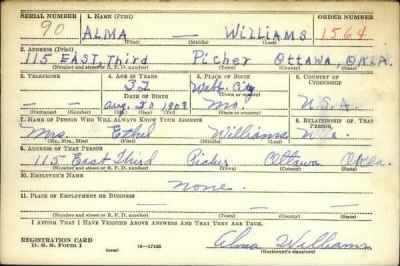 SERIAL NUMBER 1. NAME (Print) ORDER NUMBER
90 ALMA — WILLIAMS 1564
(First) (Middle) (Last)
2. ADDRESS (Print)
115 EAST Third Picher Ottawa, OKLA.
(Number and street or R. F. D. number) (Town) (County) (State)
3. TELEPHONE 4. AGE IN YEARS 5. PLACE OF BIRTH 6. COUNTRY OF CITIZENSHIP
32 Webb City
DATE OF BIRTH (Town or county)
— Aug. 20 1908 Mo. U.S.A.
(Exchange) (Number) (Mo.) (Day) (Yr.) (State or country)
7. NAME OF PERSON WHO WILL ALWAYS KNOW YOUR ADDRESS 8. RELATIONSHIP OF THAT PERSON
Mrs. Ethel Williams
(Mr., Mrs., Miss) (First) (Middle) (Last)
9. ADDRESS OF THAT PERSON
115 East Third Picher Ottawa Okla.
(Number and street or R. F. D. number) (Town) (County) (State)
10. EMPLOYER'S NAME
none.
11. PLACE OF EMPLOYMENT OR BUSINESS
—
(Number and street or R. F. D. number) (Town) (County) (State)
I AFFIRM THAT I HAVE VERIFIED ABOVE ANSWERS AND THAT THEY ARE TRUE.
REGISTRATION CARD
D. S. S. FORM 1 (over) 16—17105 Alma Williams
(Registrant's signature)